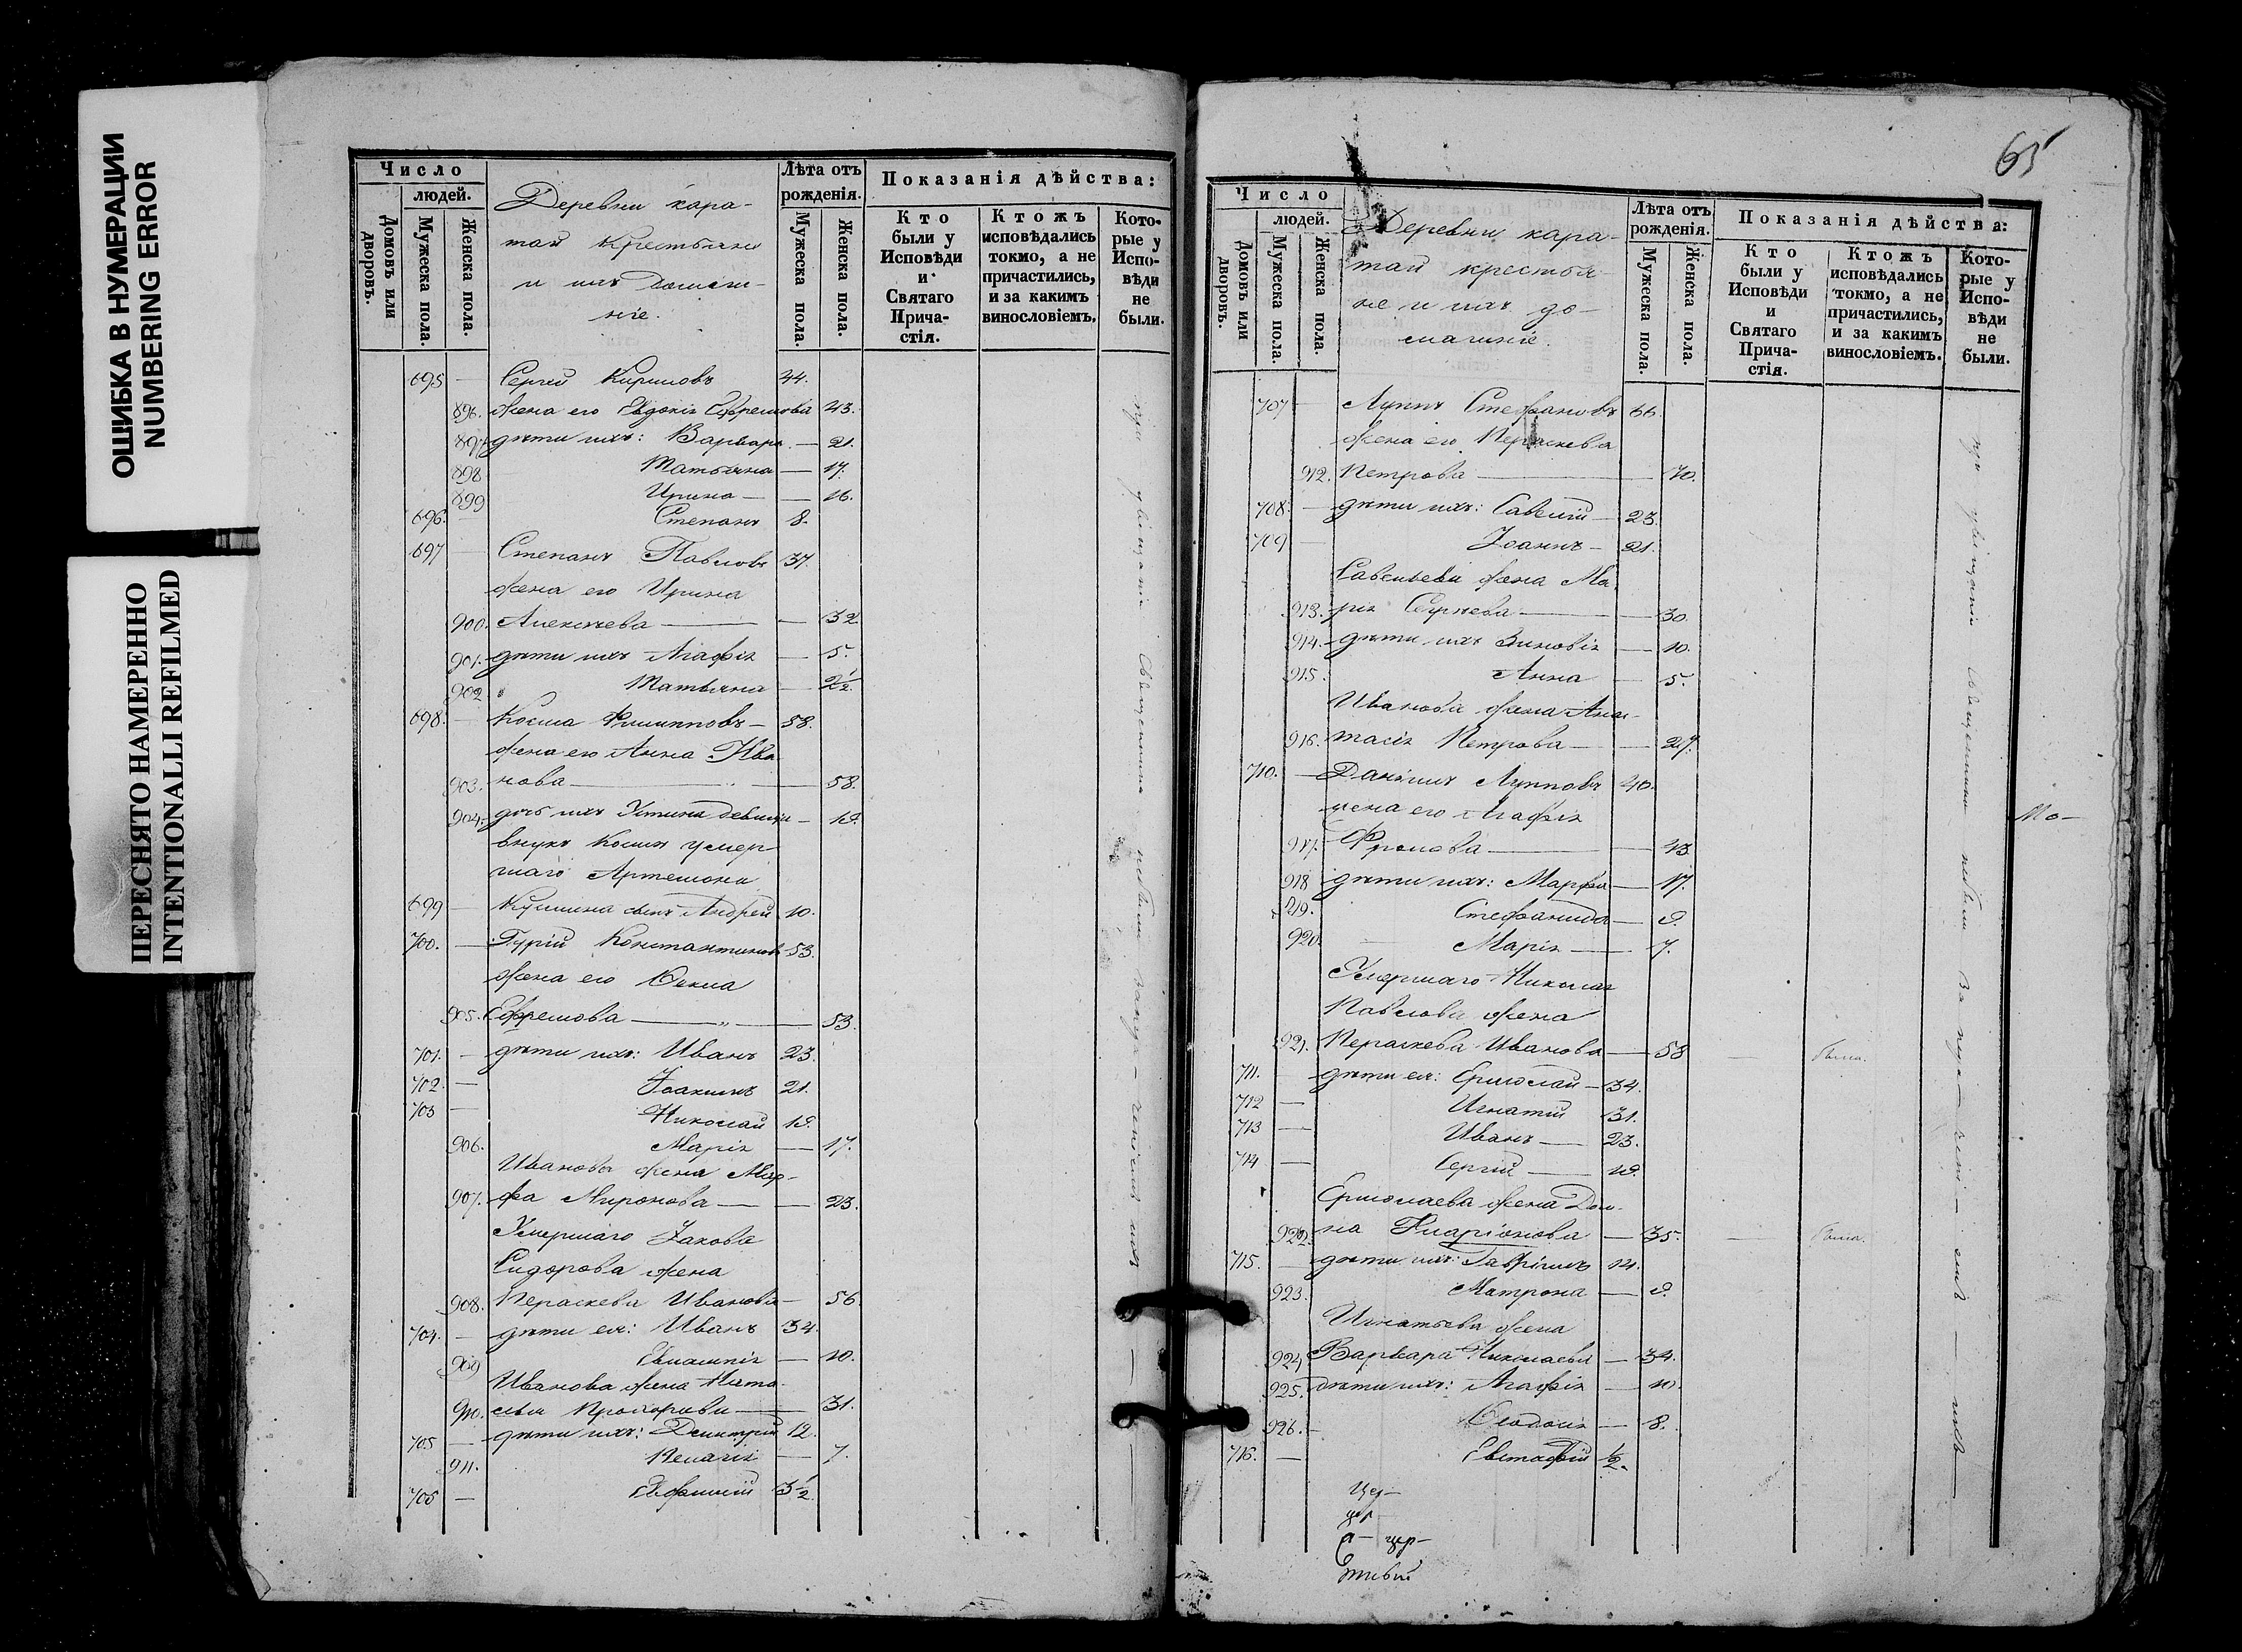 ОШИБКА В НУМЕРАЦИИ
NUMBERING ERROR
ПЕРЕСНЯТО НАМЕРЕННО
INTENTIONALLI REFILMED
Число
людей.
Домовъ или дворовъ.
Мужеска пола.
Женска пола.
Деревни кара-
тай крестьяне
и ихъ домаш-
ніе.
Лѣта отъ рожденія.
Мужеска пола.
Женска пола.
Показанія дѣйства:
Кто были у Исповѣди и Святаго Прича-стія.
Ктожъ исповѣдались токмо, а не причастились, и за какимъ винословіемъ.
Кото-рые у Испо-вѣди не были.
695 — Сергей Кириловъ 44.
896. жена его Евдокія Ефремова 43.
897. дѣти ихъ: Варвара — 21.
898 Татьяна — 17.
899 Ирина — 16.
696. — Степанъ 8.
697 — Степанъ Павловъ 37.
жена его Ирина
900. Алексѣева — 32.
901. дѣти ихъ Агафія — 5.
902. Татьяна — 2½.
698. — Косма Филипповъ — 58.
жена его Анна Ива
903. нова — 58.
904. дочь ихъ Устина девица — 19.
внукъ Космы умер-
шаго Артемона
699 — Кузмина сынъ Андрей 10.
700. — Гурій Константиновъ 53.
жена его Фекла
905. Ефремова — 53.
701. — дѣти ихъ: Иванъ 23.
702. — Іоакимъ 21.
703 — Николай 19.
906. Марія — 17.
Иванова жена Мар-
907. фа Миронова — 23.
Умершаго Іакова
Сидорова жена
908. Параскева Иванова — 56.
704. — дѣти ея: Иванъ 34.
909 Евлампія — 10.
Иванова жена Ната-
910. лья Прохорова — 31.
705 — дѣти ихъ: Димитрій 12.
911. Пелагія — 7.
706 — Евфимій 3½.
65
Число
людей.
Домовъ или дворовъ.
Мужеска пола.
Женска пола.
Деревни кара-
тай крестья-
не и ихъ до-
машніе.
Лѣта отъ рожденія.
Мужеска пола.
Женска пола.
Показанія дѣйства:
Кто были у Исповѣди и Святаго Прича-стія.
Ктожъ исповѣдались токмо, а не причастились, и за какимъ винословіемъ.
Кото-рые у Испо-вѣди не были.
707 — Луппъ Стефановъ 66.
жена его Параскева
912. Петрова — 70.
708. — дѣти ихъ: Савелій — 23.
709 — Іоаннъ — 21.
Савельева жена Ма-
913. рія Сергѣева — 30
914. дѣти ихъ Зиновія — 10.
915. Анна — 5.
Иванова жена Анас-
916. тасія Петрова — 27.
710. — Даніилъ Лупповъ 40.
жена его Агафія
917. Фролова — 43
918 дѣти ихъ: Марфа — 17.
919. Стефанида — 9.
920. Марія — 7.
Умершаго Николая
Павлова жена
921. Параскева Иванова — 58
711. дѣти ея: Ермолай — 34.
712 — Игнатій 31.
713 — Иванъ — 23.
714 — Сергій — 19.
Ермолаева жена Дом-
922. на Иларіонова — 35.
715. — дѣти ихъ: Гавріилъ 12.
923. Матрона — 9.
Игнатьева жена
924. Варвара Николаева — 34.
925. дѣти ихъ: Агафія — 10.
926. Феодосія — 8.
716. — Евстафій ½.
Мо-